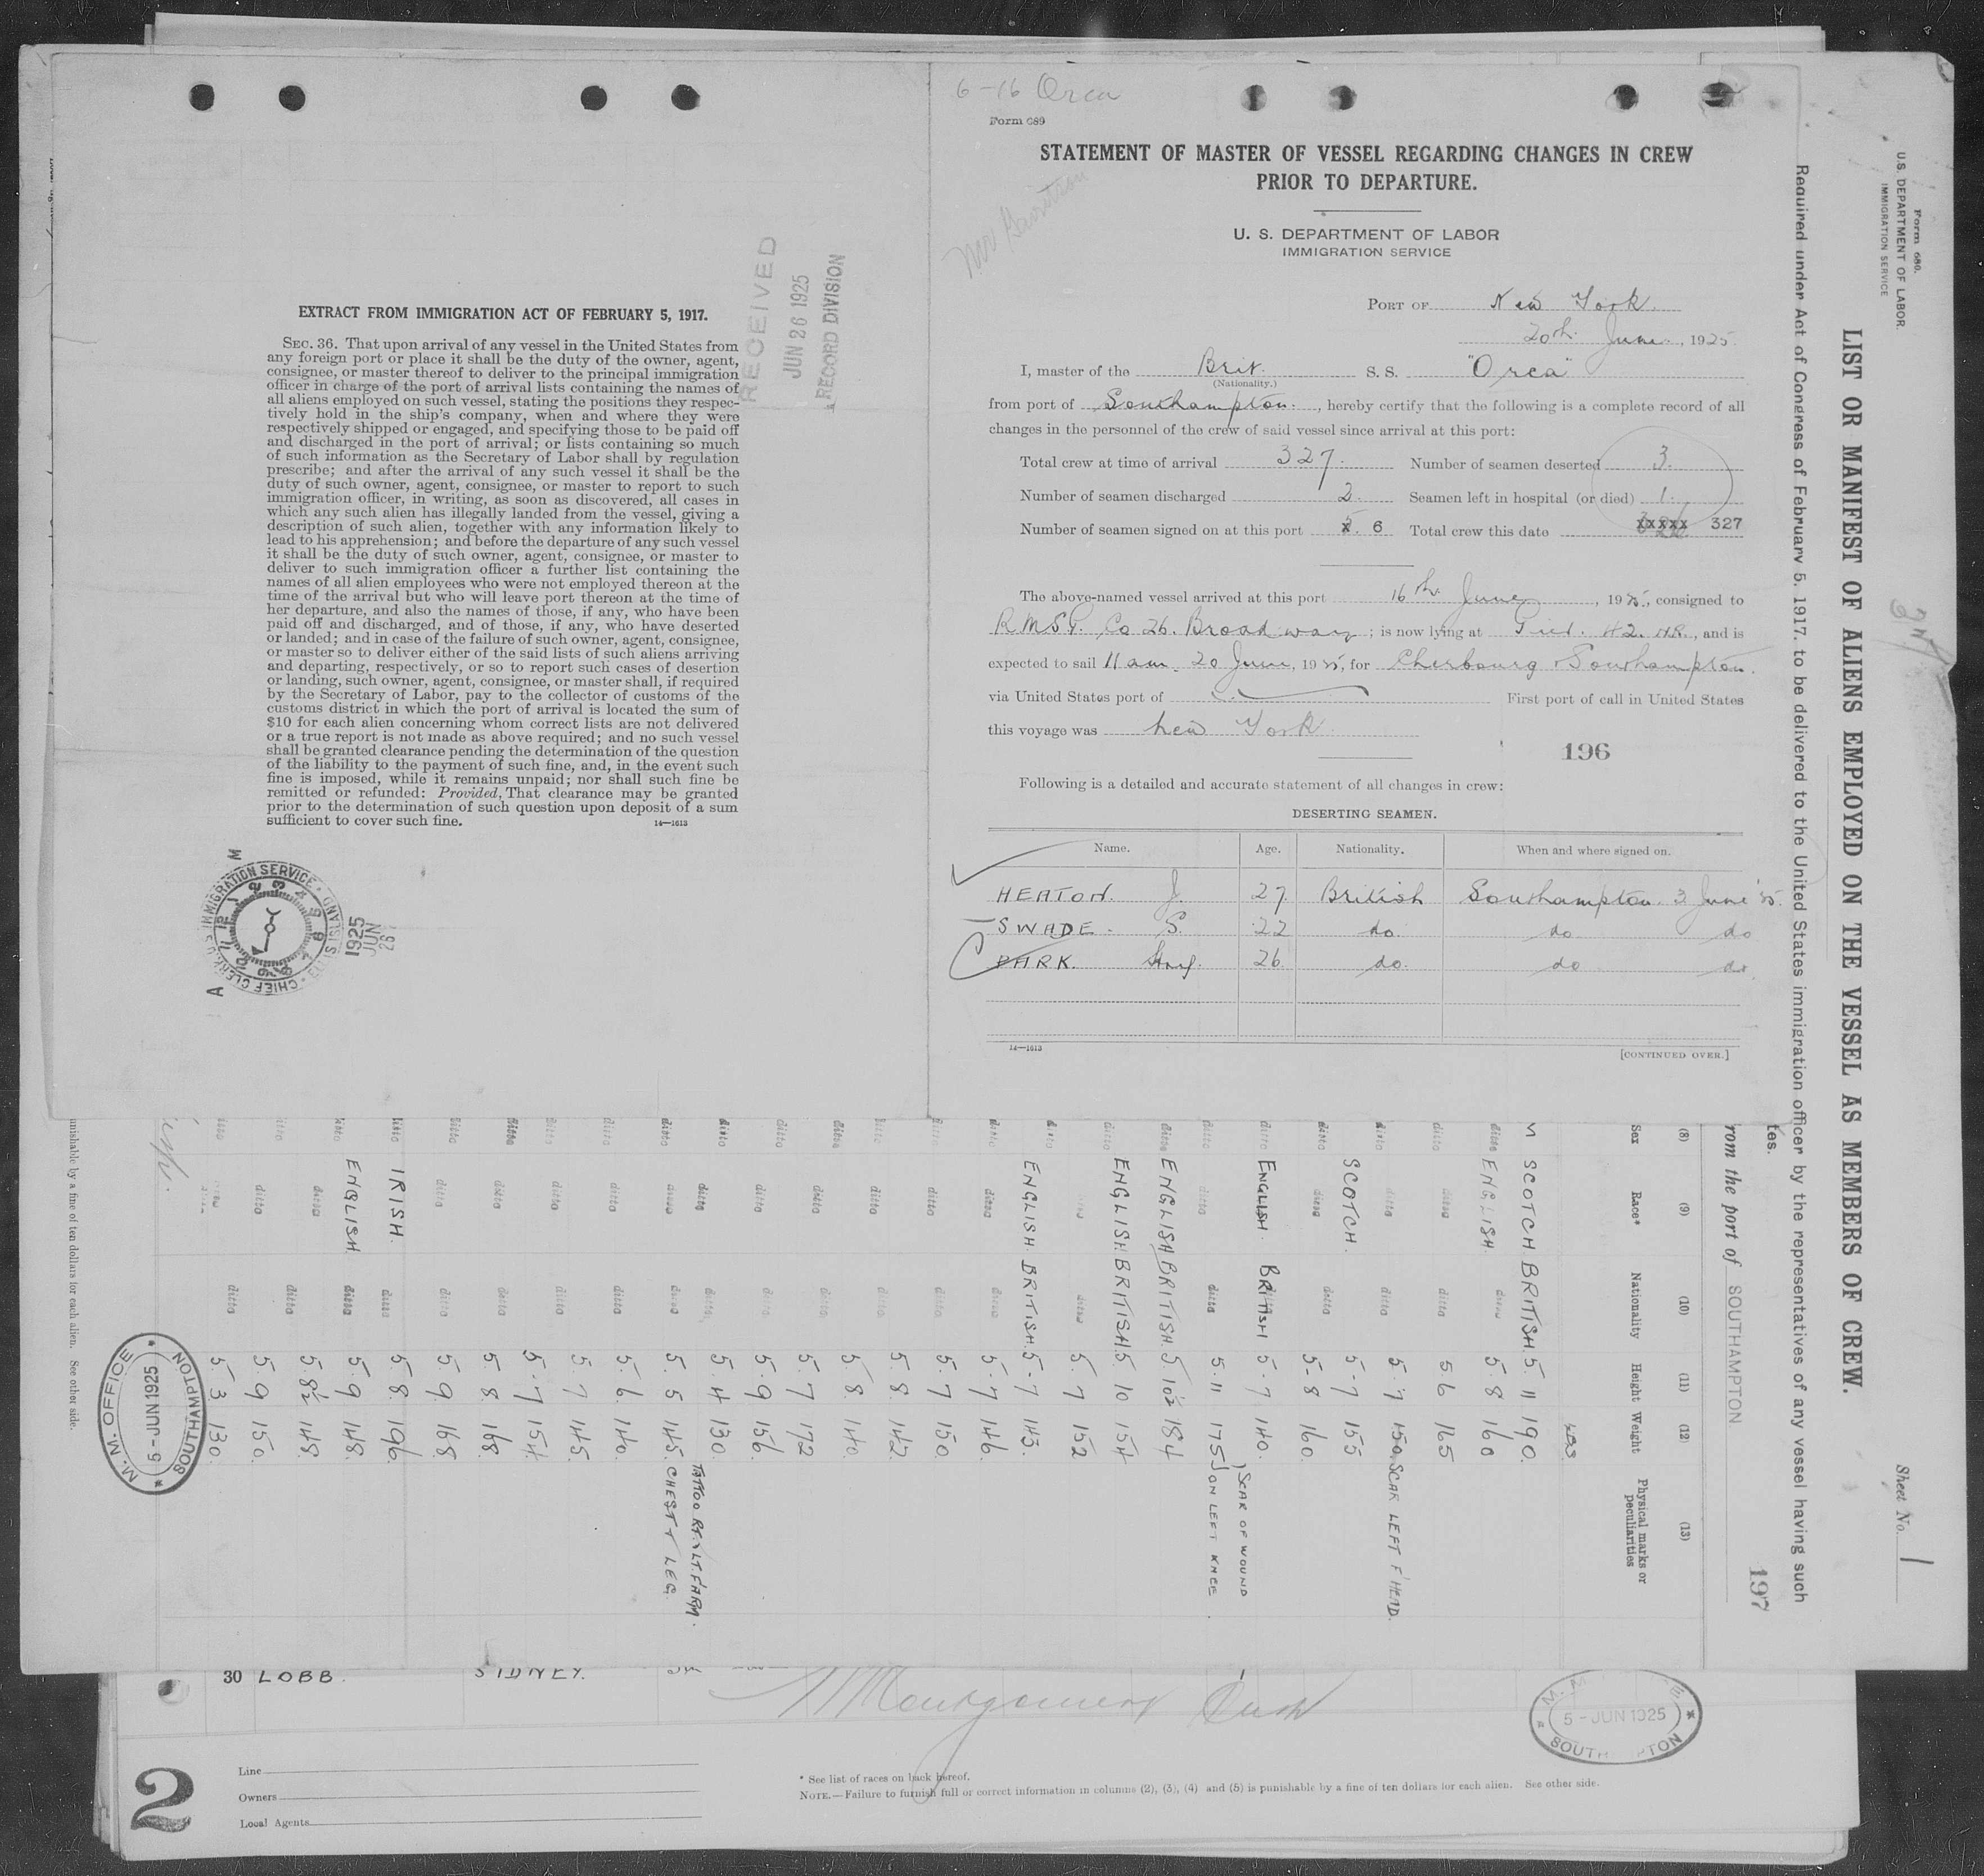 EXTRACT FROM IMMIGRATION ACT OF FEBRUARY 5, 1917.
SEC. 36. That upon arrival of any vessel in the United States from
any foreign port or place it shall be the duty of the owner, agent,
consignee, or master thereof to deliver to the principal immigration
officer in charge of the port of arrival lists containing the names of
all aliens employed on such vessel, stating the positions they respec-
tively hold in the ship's company, when and where they were
respectively shipped or engaged, and specifying those to be paid off
and discharged in the port of arrival; or lists containing so much
of such information as the Secretary of Labor shall by regulation
prescribe; and after the arrival of any such vessel it shall be the
duty of such owner, agent, consignee, or master to report to such
immigration officer, in writing, as soon as discovered, all cases in
which any such alien has illegally landed from the vessel, giving a
description of such alien, together with any information likely to
lead to his apprehension; and before the departure of any such vessel
it shall be the duty of such owner, agent, consignee, or master to
deliver to such immigration officer a further list containing the
names of all alien employees who were not employed thereon at the
time of the arrival but who will leave port thereon at the time of
her departure, and also the names of those, if any, who have been
paid off and discharged, and of those, if any, who have deserted
or landed; and in case of the failure of such owner, agent, consignee,
or master so to deliver either of the said lists of such aliens arriving
and departing, respectively, or so to report such cases of desertion
or landing, such owner, agent, consignee, or master shall, if required
by the Secretary of Labor, pay to the collector of customs of the
customs district in which the port of arrival is located the sum of
$10 for each alien concerning whom correct lists are not delivered
or a true report is not made as above required; and no such vessel
shall be granted clearance pending the determination of the question
of the liability to the payment of such fine, and, in the event such
fine is imposed, while it remains unpaid; nor shall such fine be
remitted or refunded: Provided, That clearance may be granted
prior to the determination of such question upon deposit of a sum
sufficient to cover such fine.
14—1613
RECEIVED
JUN 26 1925
RECORD DIVISION
CHIEF CLERK U.S. IMMIGRATION SERVICE · ELLIS ISLAND
1925
JUN
26
6-16 Orca
Form 689
STATEMENT OF MASTER OF VESSEL REGARDING CHANGES IN CREW
PRIOR TO DEPARTURE.
U. S. DEPARTMENT OF LABOR
IMMIGRATION SERVICE
PORT OF New York.
20th June, 1925.
I, master of the Brit. S. S. "Orca"
(Nationality.)
from port of Southampton., hereby certify that the following is a complete record of all
changes in the personnel of the crew of said vessel since arrival at this port:
Total crew at time of arrival 327. Number of seamen deserted 3.
Number of seamen discharged 2. Seamen left in hospital (or died) 1.
Number of seamen signed on at this port 6 Total crew this date xxxxx 327
The above-named vessel arrived at this port 16th June, 1925, consigned to
R.M.S.P. Co. 26. Broadway; is now lying at Pier. 42. N.R., and is
expected to sail 11 am. 20 June, 1925, for Cherbourg & Southampton.
via United States port of First port of call in United States
this voyage was New York
196
Following is a detailed and accurate statement of all changes in crew:
DESERTING SEAMEN.
Name. Age. Nationality. When and where signed on.
HEATON. J. 27 British Southampton. 3 June '25.
SWADE. S. 22 do. do do
PARK. 26 do. do do
14—1613
[CONTINUED OVER.]
Form 680.
U.S. DEPARTMENT OF LABOR.
IMMIGRATION SERVICE
Sheet No. 1
LIST OR MANIFEST OF ALIENS EMPLOYED ON THE VESSEL AS MEMBERS OF CREW.
Required under Act of Congress of February 5, 1917, to be delivered to the United States immigration officer by the representatives of any vessel having such
197
tes.
rom the port of SOUTHAMPTON
(8) (9) (10) (11) (12) (13)
Sex Race* Nationality Height Weight Physical marks or peculiarities
M SCOTCH BRITISH. 5 11 190.
ditto ENGLISH ditto 5. 8 160
ditto ditto 5 6 165
ditto ditto ditto 5. 7 150 SCAR LEFT F'HEAD.
ditto SCOTCH. ditto 5-7 155
ditto ditto 5-8 160
ditto ENGLISH. BRITISH 5-7 140.
ditto ditto ditto 5. 11 175 SCAR OF WOUND ON LEFT KNEE.
ditto ENGLISH BRITISH. 5. 10½ 184
ditto ENGLISH BRITISH. 5. 10 154
ditto ditto ditto 5. 7 152
ditto ENGLISH. BRITISH. 5-7 143.
ditto ditto ditto 5-7 146.
ditto ditto ditto 5. 7 150
ditto ditto ditto 5. 8. 142.
ditto ditto ditto 5 8. 140.
ditto ditto ditto 5. 7 172
ditto ditto ditto 5. 9 156.
ditto ditto ditto 5. 4 130. TATTOO RT. & LT. F'ARM.
ditto ditto ditto 5. 5 145. CHEST & LEG
ditto ditto ditto 5. 6. 140.
ditto ditto ditto 5. 7 145.
ditto ditto ditto 5-7 154.
ditto ditto ditto 5. 8. 168.
ditto ditto ditto 5. 9. 168
ditto IRISH. ditto 5 8. 196.
ditto ENGLISH. ditto 5. 9 148.
ditto ditto ditto 5. 8½ 148.
ditto ditto 5. 9 150.
ditto ditto 5. 3. 130.
M. M. OFFICE
5-JUN 1925
SOUTHAMPTON
unishable by a fine of ten dollars for each alien. See other side.
30 LOBB. SIDNEY.
5-JUN 1925
2
Line
Owners
Local Agents
* See list of races on back hereof.
NOTE.—Failure to furnish full or correct information in columns (2), (3), (4) and (5) is punishable by a fine of ten dollars for each alien. See other side.